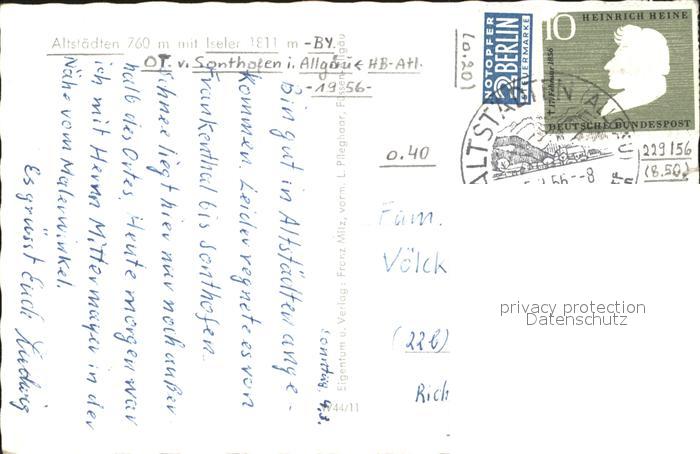 Altstädten 760 m mit Iseler 1811 m -BY.
OT. v. Sonthofen i. Allgäu < HB-Atl.
-1956-
Sonntag, 4.3.
Bin gut in Altstädten ange-
kommen. Leider regnete es von
Frankenthal bis Sonthofen.
Schnee liegt hier nur noch außer-
halb des Ortes. Heute morgen war
ich mit Herrn Mittermayer in der
Nähe vom Malerwinkel.
Es grüsst Euch Ludwig
Eigentum u. Verlag: Franz Milz, vorm. L. Pfleghaar, Füssen-Allgäu
1744/11
(0.20)
NOTOPFER
2 BERLIN
STEUERMARKE
10
HEINRICH HEINE
† 17. Februar 1856
DEUTSCHE BUNDESPOST
ALTSTÄDTEN (A
56.--8
229|56
(8.50)
0.40
Fam.
Völck
(22b)
Rich
privacy protection
Datenschutz